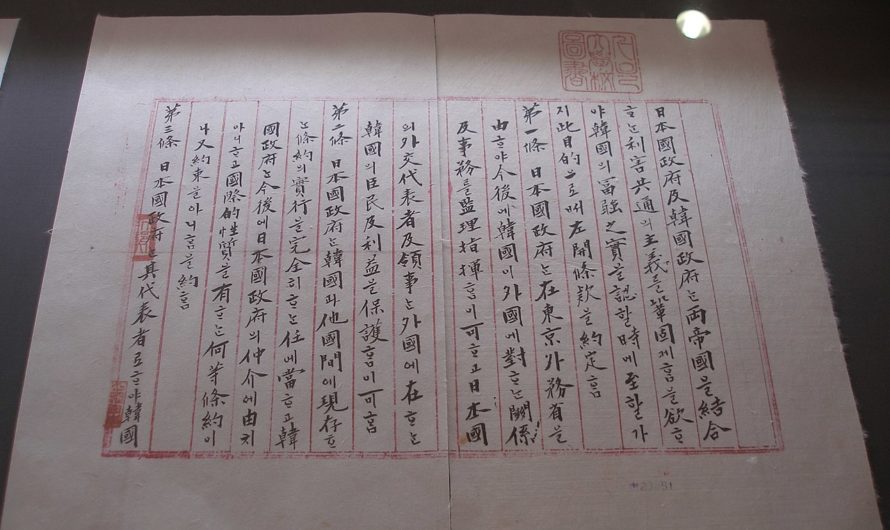 日本國政府及韓國政府는兩帝國을結合
ᄒᆞ는利害共通의主義를鞏固케ᄒᆞᆷ을欲ᄒᆞ
야韓國의富强之實을認할時에至할가
지此目的으로써左開條款을約定ᄒᆞᆷ
第一條 日本國政府는在東京外務省을
由ᄒᆞ야今後에韓國이外國에對ᄒᆞ는關係
及事務를監理指揮ᄒᆞᆷ이可ᄒᆞ고日本國
의外交代表者及領事는外國에在ᄒᆞ는
韓國의臣民及利益을保護ᄒᆞᆷ이可ᄒᆞᆷ
第二條 日本國政府는韓國과他國間에現存ᄒᆞ
는條約의實行을完全히ᄒᆞ는任에當ᄒᆞ고韓
國政府는今後에日本國政府의仲介에由치
아니ᄒᆞ고國際的性質을有ᄒᆞ는何等條約이
나又約束을아니ᄒᆞᆷ을約ᄒᆞᆷ
第三條 日本國政府는其代表者로ᄒᆞ야韓國